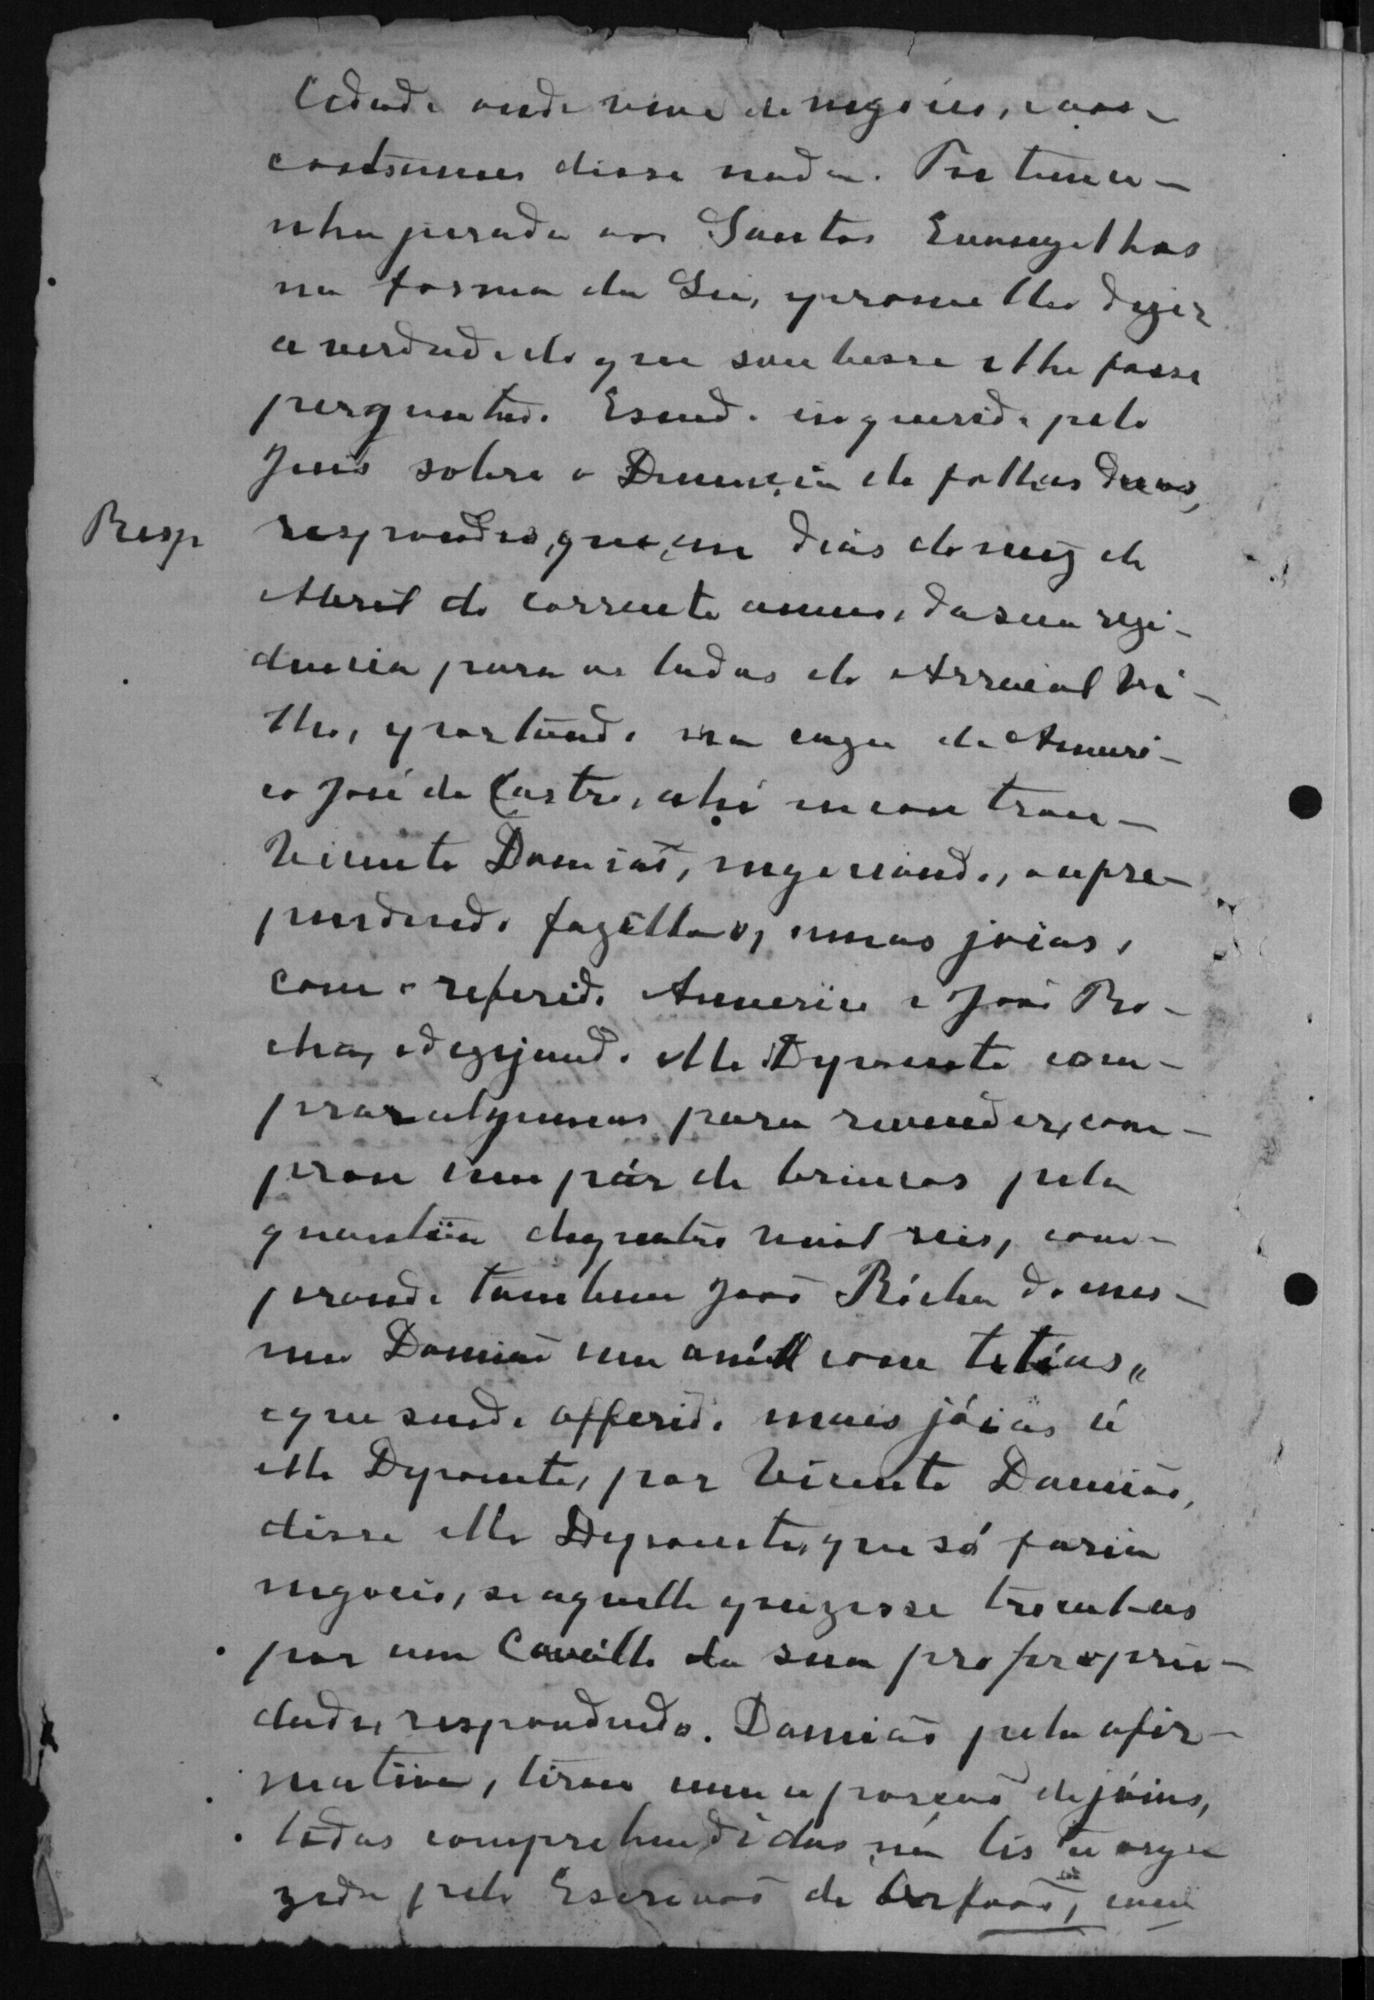 Cidade onde vive de negocio, e aos
costumes disse nada. Testemu-
nha jurada aos Santos Evangelhos
na forma da Lei, e prometteo dizer
a verdade do que soubesse e lhe fosse
perguntado. E sendo inquerido pelo
Juis sobre a Denuncia de folhas duas,
Resp respondeo, que, em dias do mez de
Abril do corrente anno, da sua rezi-
dencia para os lados do Arraial Ve-
lho, e portando na caza de Ameri-
co José de Castro, ahi encontrou
Vicente Damiaõ, negociando, e apre-
pondendo fazello, umas joias,
com o referido Americo e Joaõ Ro-
cha, e dezejando elle Depoente com-
prar algumas para revender, com-
prou um pár de brincos pela
quantia de quatro mil reis, com-
prando tambem Joaõ Rócha do mes-
mo Damiaõ um anéll com tetéias,
e que sendo offerido mais jóias á
elle Depoente, por Vicente Damiaõ,
disse elle Depoente, que só faria
negocio, se aquelle quizesse trocal-as
por um Cavállo da sua proproprie-
dade, respondendo Damiaõ pela afir-
mativa, tirou uma porçaõ de jóias,
todas comprehendidas na lista orga
zada pelo Escrivaõ de Orfaos, com